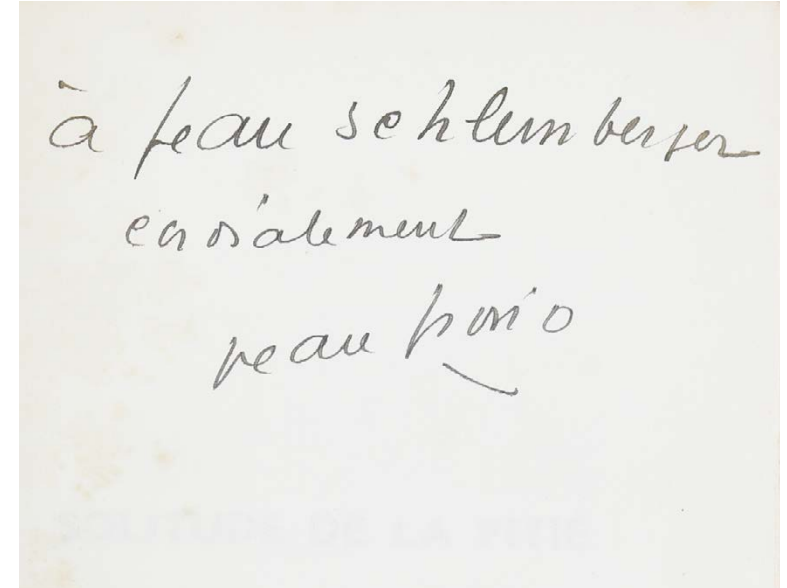 à Jean Schlumberger
cordialement
Jean Giono
SOLITUDE DE LA PITIÉ